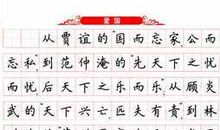 爱国
从贾谊的"国而忘家公而
忘私"到范仲淹的"先天下之忧
而忧后天下之乐而乐"从顾炎
武的"天下兴亡匹夫有责"到林